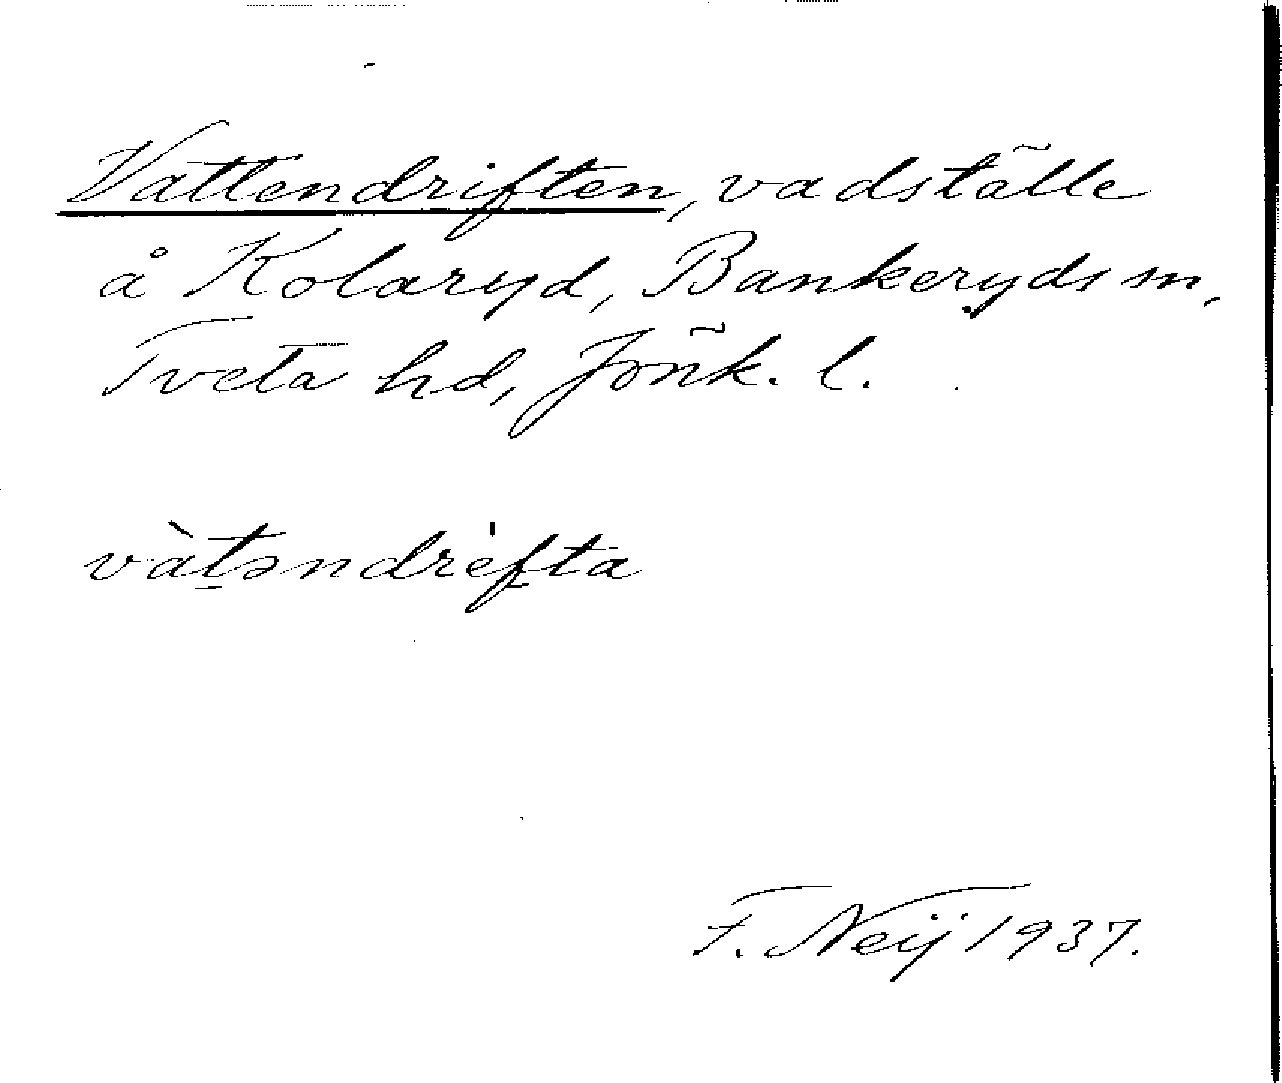 Vattendriften, vadställe
å Kolaryd, Bankeryds sn,
Tveta hd, Jönk. l.
vàtəndrèfta
F. Neij 1937.